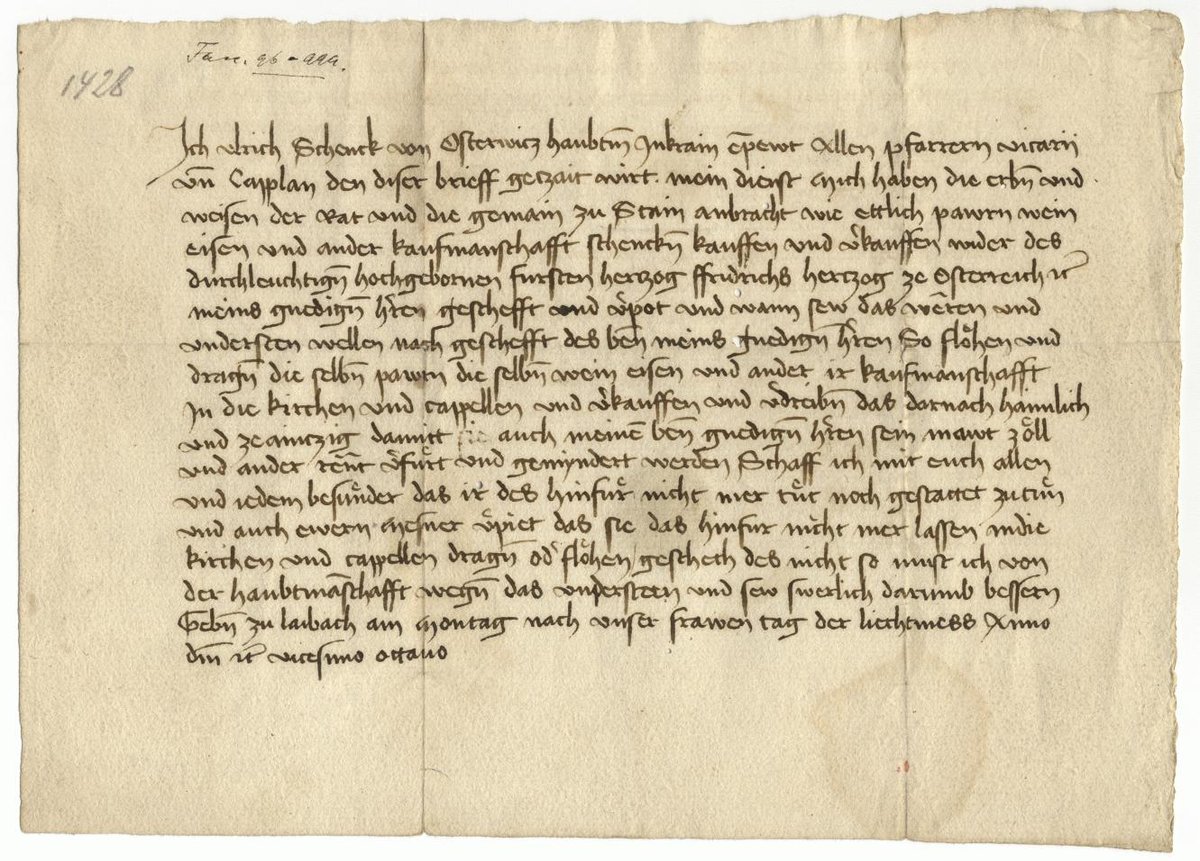 1428
Ich Ulrich Schenck von Osterwicz haubtm̄ Inkrain ēpewt Allen pfarrern vicarii
vn̄ Capplan den diser brieff geczait wirt. mein dienst Mich haben die erbn̄ und
weisen der Rat und die gemain zu Stain anbracht wie ettlich pawrn wein
eisen und ander kaufmanschafft schenckn̄ kauffen und v̉kauffen wider des
durchleuchtign̄ hochgebornen fursten hertzog ffridrichs hertzog ze Osterreich
meins gnedign̄ hr̄en geschefft und v̉pot und wann sew das weren und
understen wellen nach geschefft des ben̄ meins gnedign̄ hr̄en So flöhen und
dragn̄ die selbn̄ pawrn die selbn̄ wein eisen und ander ir kaufmanschafft
In die kirchen und cappellen und v̉kauffen und v̉treibn̄ das darnach haimlich
und ze aintzig damitt auch meinē ben̄ gnedign̄ hr̄en sein mawt zöll
und ander v̉fürt und gemyndert werden Schaff ich mit euch allen
und iedem besunder das ir des hinfür nicht mer tüt noch gestattet zu tün
und auch ewern Mesner v̉piet das sie das hinfur nicht mer lassen indie
kirchen und cappellen dragn̄ od̉ flöhen geschech des nicht so must ich von
der haubtmāschafft wegn̄ das understeen und sew swerlich darumb bessern
Gebn̄ zu laibach am Montag nach unser frawen tag der liechtmess Anno
dm̄ vicesimo octavo